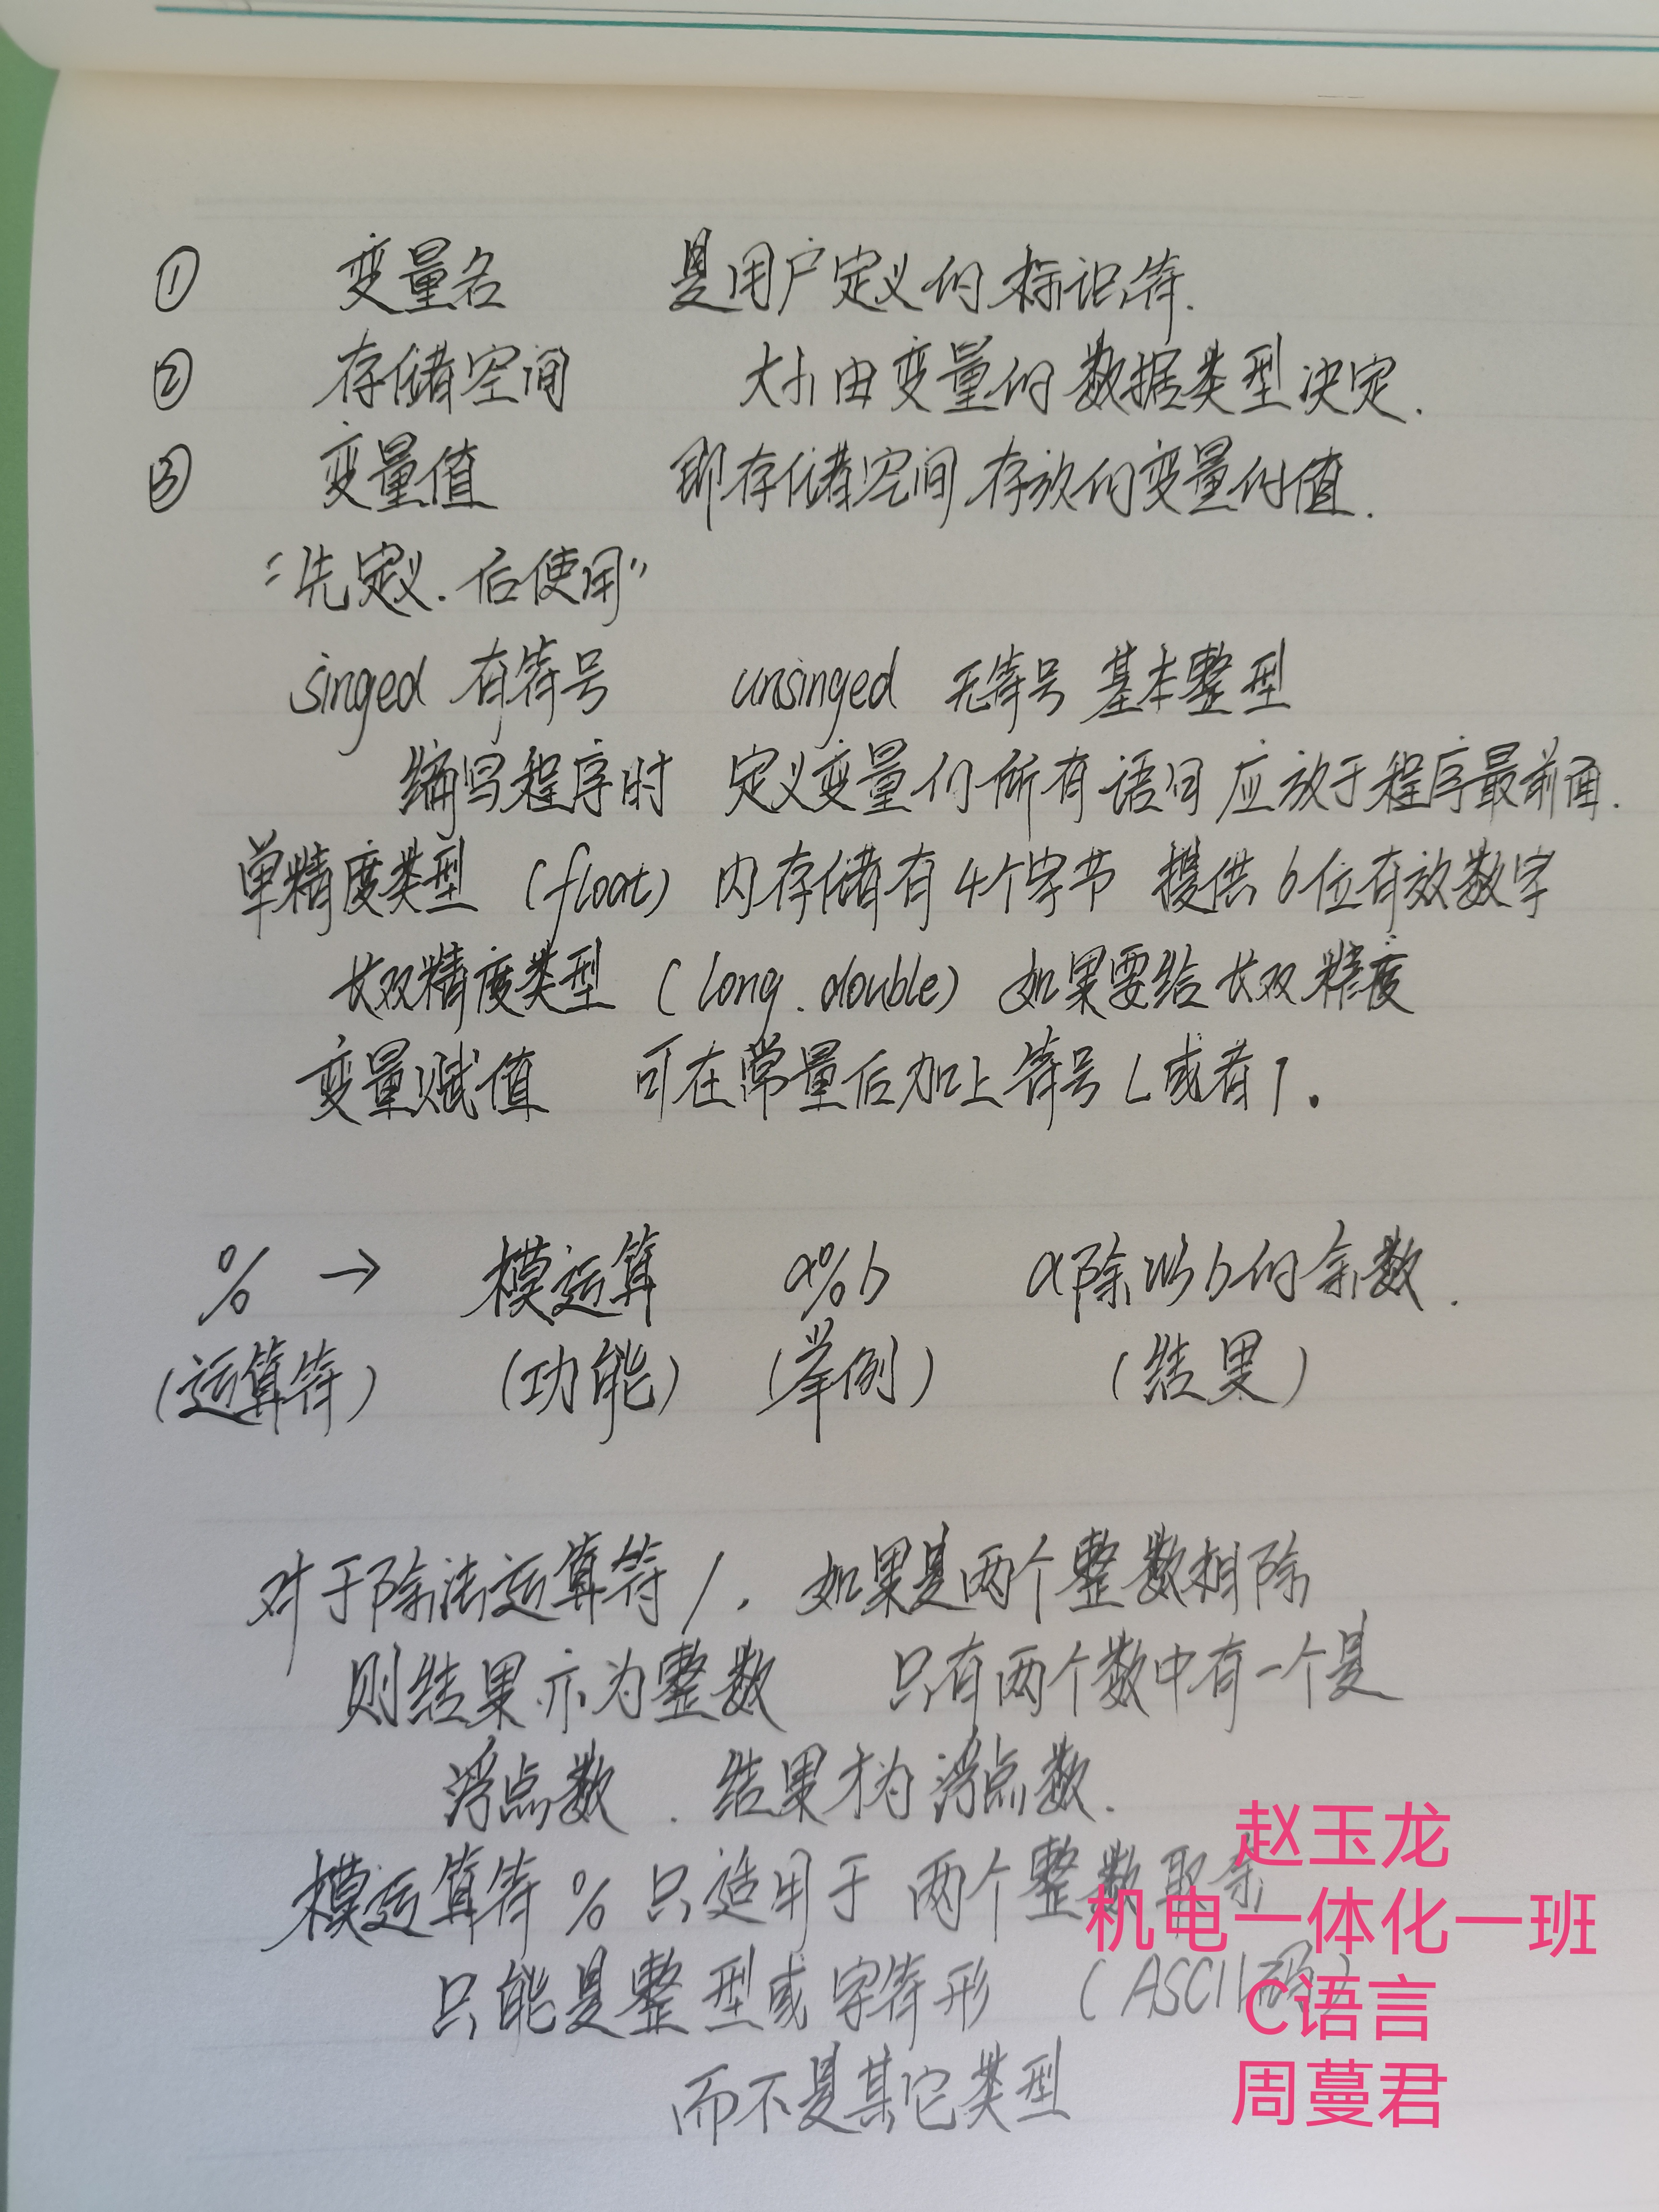 ① 变量名 是用户定义的标识符.
② 存储空间 大小由变量的数据类型决定.
③ 变量值 即存储空间存放的变量的值.
“先定义.后使用”
singed 有符号 unsinged 无符号 基本整型
编写程序时 定义变量的所有语句应放于程序最前面.
单精度类型 (float) 内存储有4个字节 提供6位有效数字
长双精度类型 (long.double) 如果要给长双精度
变量赋值 可在常量后加上符号L或者l.
% → 模运算 a%b a除以b的余数.
(运算符) (功能) (举例) (结果)
对于除法运算符/. 如果是两个整数相除
则结果亦为整数 只有两个数中有一个是
浮点数.结果才为浮点数.
模运算符%只适用于两个整数取余
只能是整型或字符形 (ASCII码)
而不是其它类型
赵玉龙
机电一体化一班
C语言
周蔓君